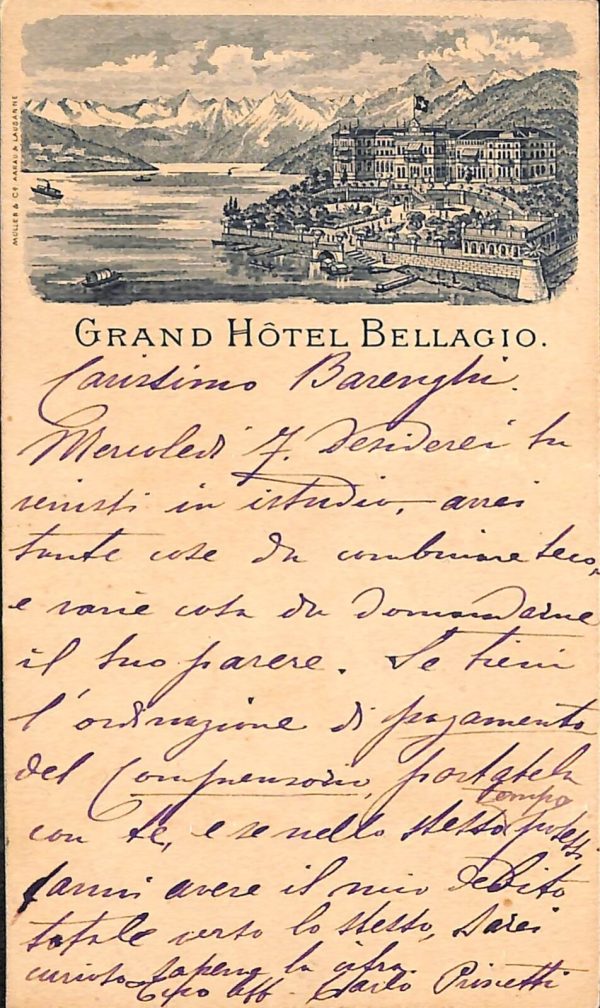 MÜLLER & Cº AARAU & LAUSANNE
GRAND HÔTEL BELLAGIO.
Carissimo Barenghi.
Mercoledì 7. desiderei tu
venisti in istudio, avrei
tante cose da combinare teco,
e varie cose da domandarne
il tuo parere. Se tieni
l'ordinazione di pagamento
del Comprensorio, portatela
con te, e se nello stesso tempo potessi
farmi avere il mio debito
totale verso lo stesso, sarei
curioso saperne la cifra.
Tuo aff. Carlo